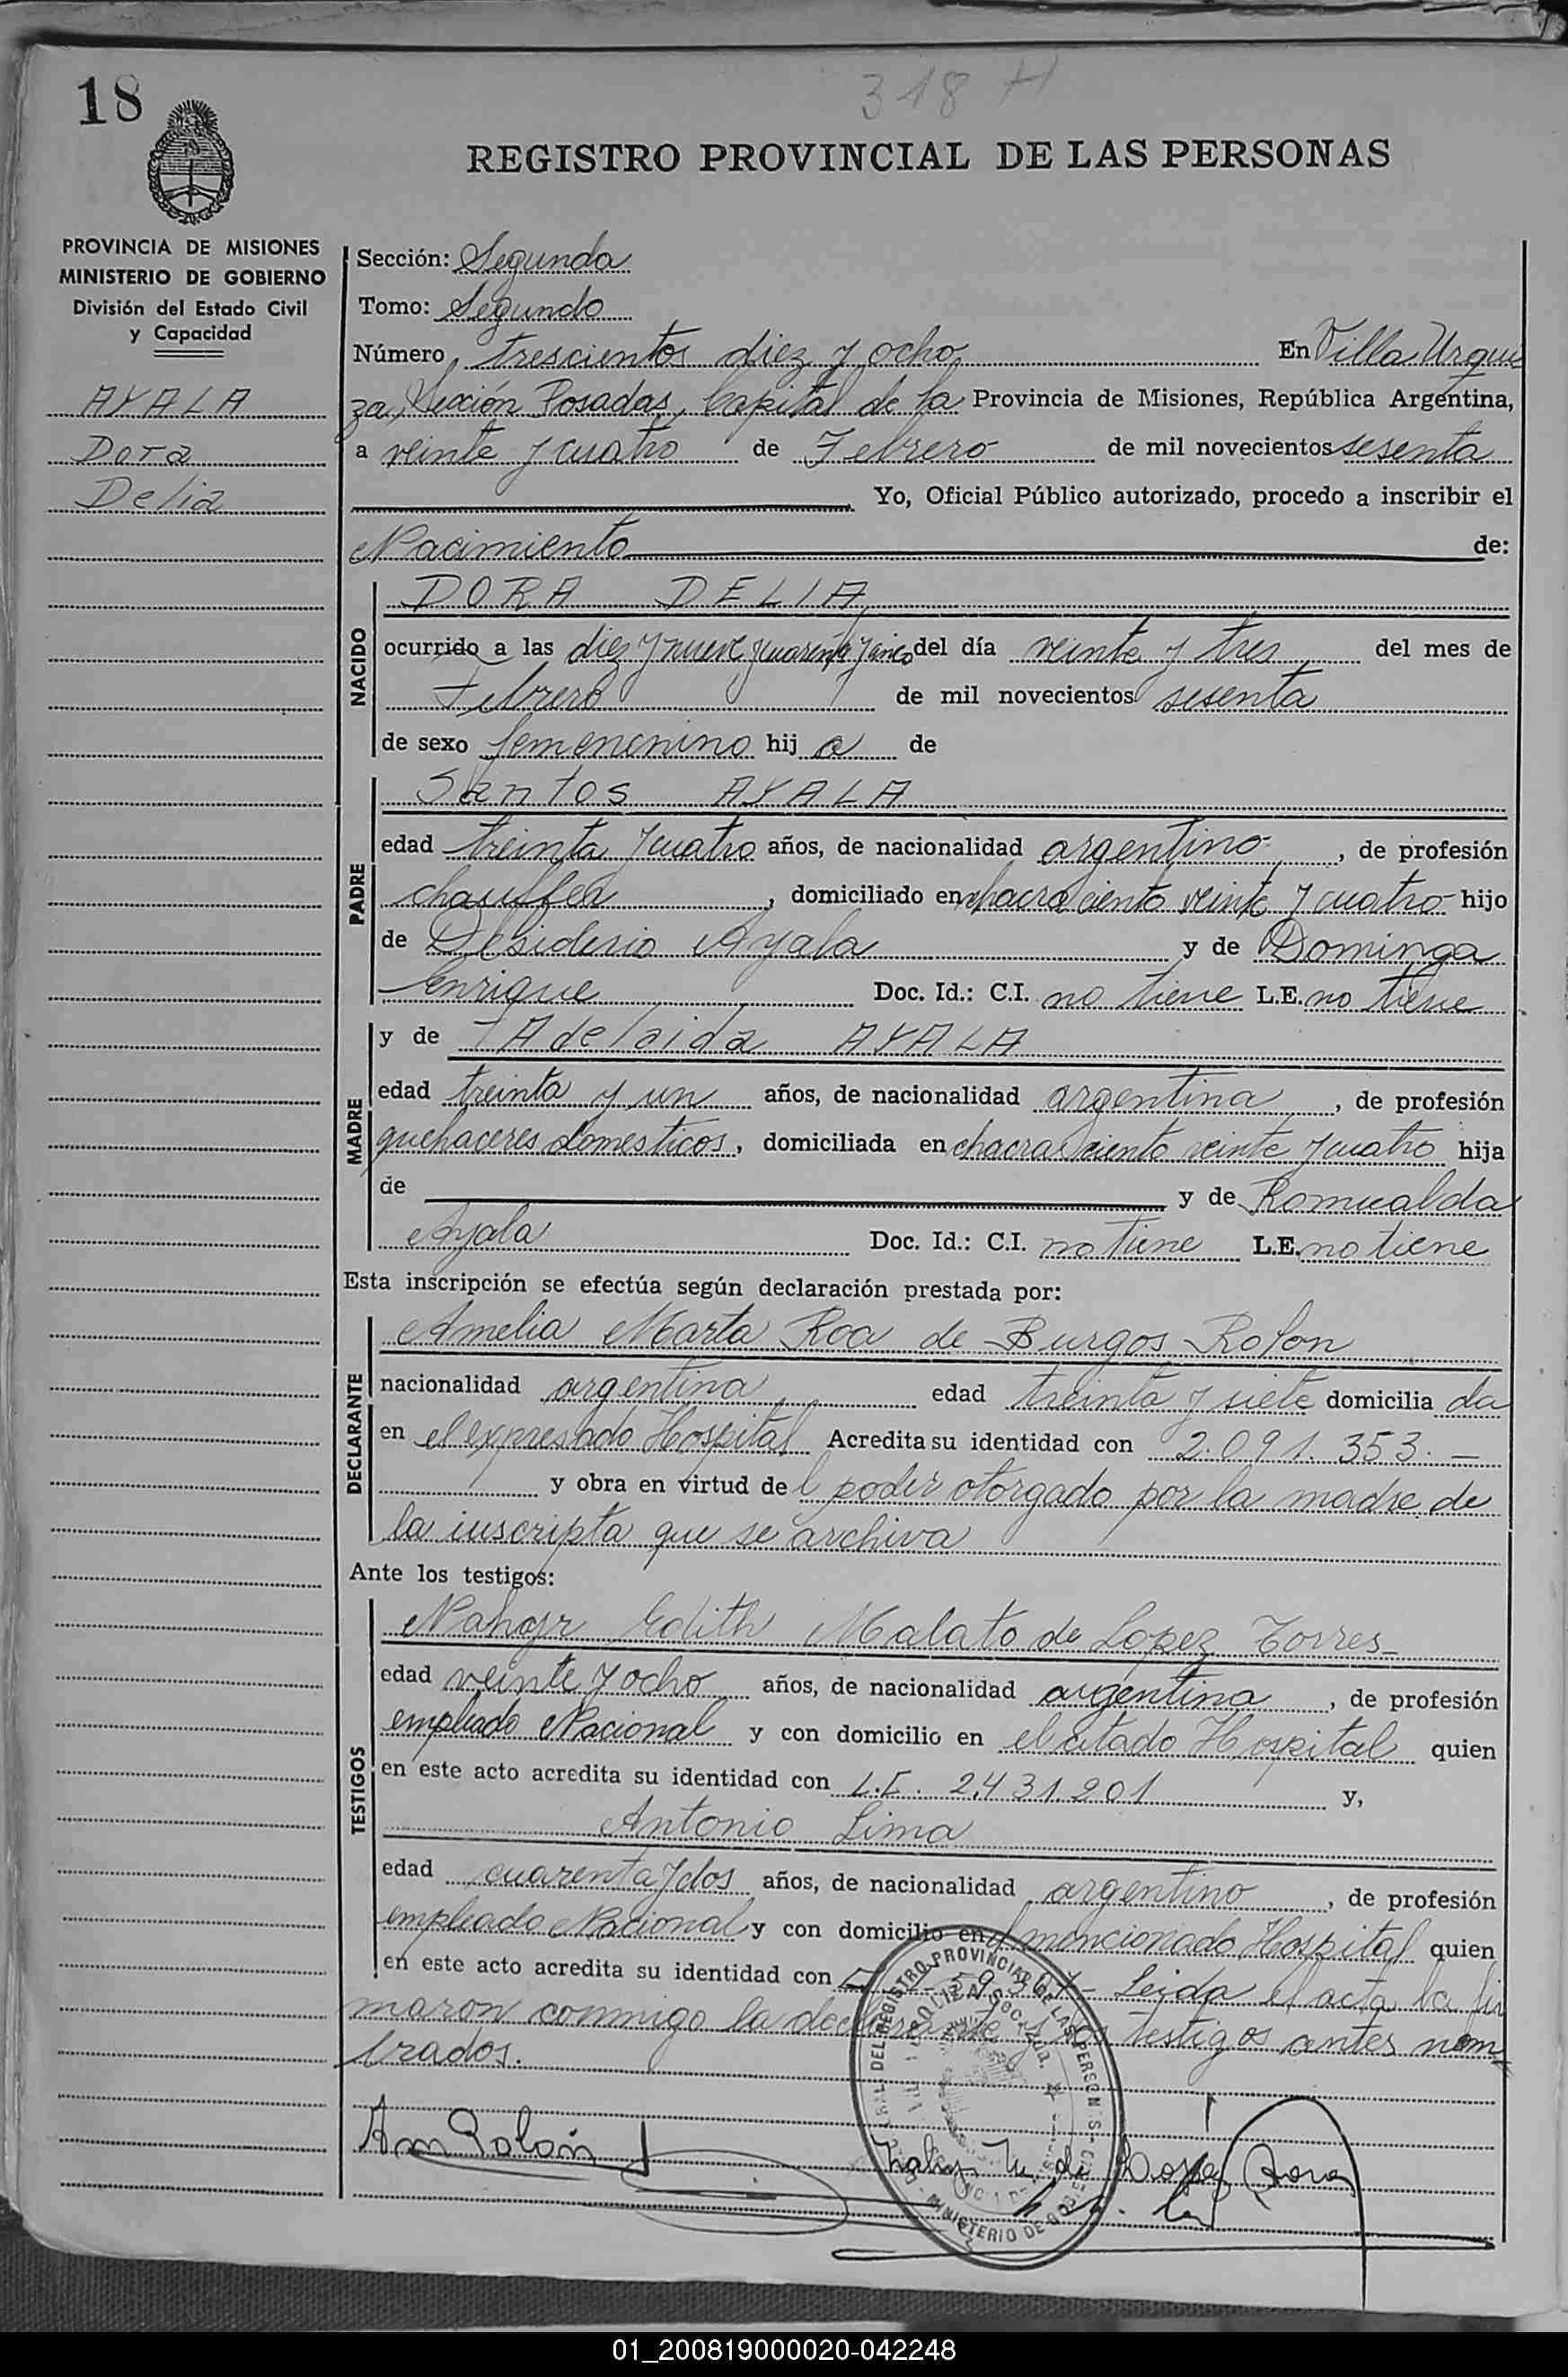 18
318 H
REGISTRO PROVINCIAL DE LAS PERSONAS
PROVINCIA DE MISIONES
MINISTERIO DE GOBIERNO
División del Estado Civil
y Capacidad
AYALA
Dora
Delia
Sección: Segunda
Tomo: Segundo
Número trescientos diez y ocho En Villa Urqui
za, Sección Posadas, Capital de la Provincia de Misiones, República Argentina,
a veinte y cuatro de Febrero de mil novecientos sesenta
Yo, Oficial Público autorizado, procedo a inscribir el
Nacimiento de:
NACIDO
DORA DELIA
ocurrido a las diez y nueve y cuarenta y cinco del día veinte y tres del mes de
Febrero de mil novecientos sesenta
de sexo femenenino hij a de
PADRE
Santos AYALA
edad treinta y cuatro años, de nacionalidad argentino , de profesión
chauffer , domiciliado en chacra ciento veinte y cuatro hijo
de Desiderio Ayala y de Dominga
Enrique Doc. Id.: C.I. no tiene L.E. no tiene
MADRE
y de Adelaida AYALA
edad treinta y un años, de nacionalidad argentina , de profesión
quehaceres domesticos, domiciliada en chacra ciento veinte y cuatro hija
de y de Romualda
Ayala Doc. Id.: C.I. no tiene L.E. no tiene
Esta inscripción se efectúa según declaración prestada por:
DECLARANTE
Amelia Marta Roa de Burgos Rolon
nacionalidad argentina edad treinta y siete domicilia da
en el expresado Hospital Acredita su identidad con 2.091.353.—
y obra en virtud de l poder otorgado por la madre de
la inscripta que se archiva
Ante los testigos:
TESTIGOS
Nahyr Edith Malato de Lopez Torres
edad veinte y ocho años, de nacionalidad argentina , de profesión
empleado Nacional y con domicilio en el citado Hospital quien
en este acto acredita su identidad con 2.431.201 y,
Antonio Lima
edad cuarenta y dos años, de nacionalidad argentino , de profesión
empleado Nacional y con domicilio en el mencionado Hospital quien
en este acto acredita su identidad con Leida el acta la fir
maron conmigo la declarante y los testigos antes nom
brados.
Am Rolon
MINISTERIO DE GOBIERNO
01_200819000020-042248